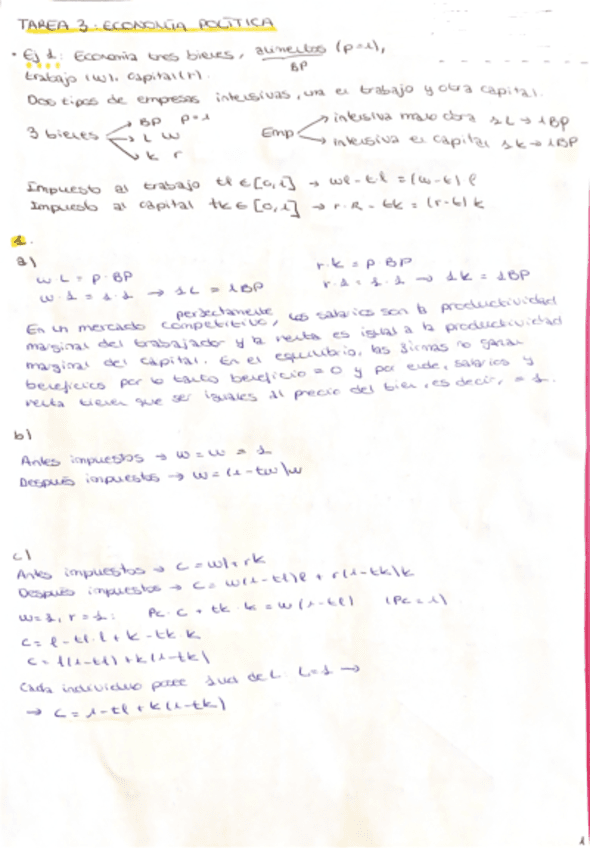 TAREA 3: ECONOMÍA POLÍTICA
• Ej 1: Economía tres bienes, alimentos (p=1),
BP
trabajo (w), capital (r).
Dos tipos de empresas intensivas, una en trabajo y otra capital.
3 bienes → BP p=1
→ L w
→ k r
Emp → intensiva mano obra 1L → 1BP
→ intensiva en capital 1k → 1BP
Impuesto al trabajo tl ∈ [0,1] → wl - tl = (w-t) l
Impuesto al capital tk ∈ [0,1] → r.k - tk = (r-t) k
1.
a)
w L = p · BP
w · 1 = 1 · 1 → 1L = 1BP
r · k = p BP
r · 1 = 1 · 1 → 1k = 1BP
perfectamente
En un mercado competitivo, los salarios son la productividad
marginal del trabajador y la renta es igual a la productividad
marginal del capital. En el equilibrio, las firmas no ganan
beneficios por lo tanto beneficio = 0 y por ende, salarios y
renta tienen que ser iguales al precio del bien, es decir, = 1.
b)
Antes impuestos → w = w = 1
Después impuestos → w = (1 - tw) w
c)
Antes impuestos → c = wl + rk
Después impuestos → c = w(1-tl)l + r(1-tk)k
w=1, r=1: Pc · c + tk · k = w (1-tl) (Pc=1)
c = l - tl · l + k - tk · k
c = l(1-tl) + k(1-tk)
Cada individuo posee 1 ud de L. L=1 →
→ c = 1 - tl + k(1-tk)
1